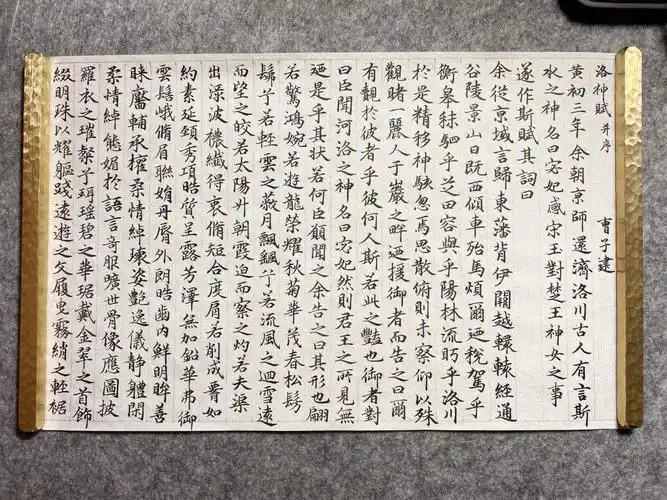 洛神賦 并序 曹子建
黃初三年余朝京師還濟洛川古人有言斯
水之神名曰宓妃感宋王對楚王神女之事
遂作斯賦其詞曰
余從京域言歸東藩背伊闕越轘轅經通
谷陵景山日既西傾車殆馬煩爾迺稅駕乎
蘅皋秣駟乎芝田容與乎陽林流眄乎洛川
於是精移神駭忽焉思散俯則未察仰以殊
觀睹一麗人于巖之畔迺援御者而告之曰爾
有覿於彼者乎彼何人斯若此之豔也御者對
曰臣聞河洛之神名曰宓妃然則君王之所見無
迺是乎其狀若何臣願聞之余告之曰其形也翩
若驚鴻婉若遊龍榮耀秋菊華茂春松髣
髴兮若輕雲之蔽月飄颻兮若流風之迴雪遠
而望之皎若太陽升朝霞迫而察之灼若夫渠
出淥波穠纖得衷脩短合度肩若削成腰如
約素延頸秀項皓質呈露芳澤無加鉛華弗御
雲髻峨峨脩眉聯娟丹脣外朗皓齒內鮮明眸善
睞靨輔承權柔情綽瓌姿豔逸儀靜體閑
柔情綽態媚於語言奇服曠世骨像應圖披
羅衣之璀粲兮珥瑤碧之華琚戴金翠之首飾
綴明珠以耀軀踐遠遊之文履曳霧綃之輕裾